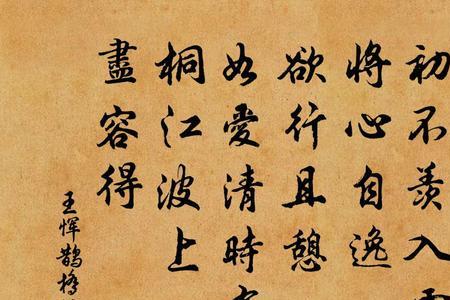 初不羨入
將心自逸
欲行且憩
如愛清時
桐江波上
盡容得
王惲鵲橋